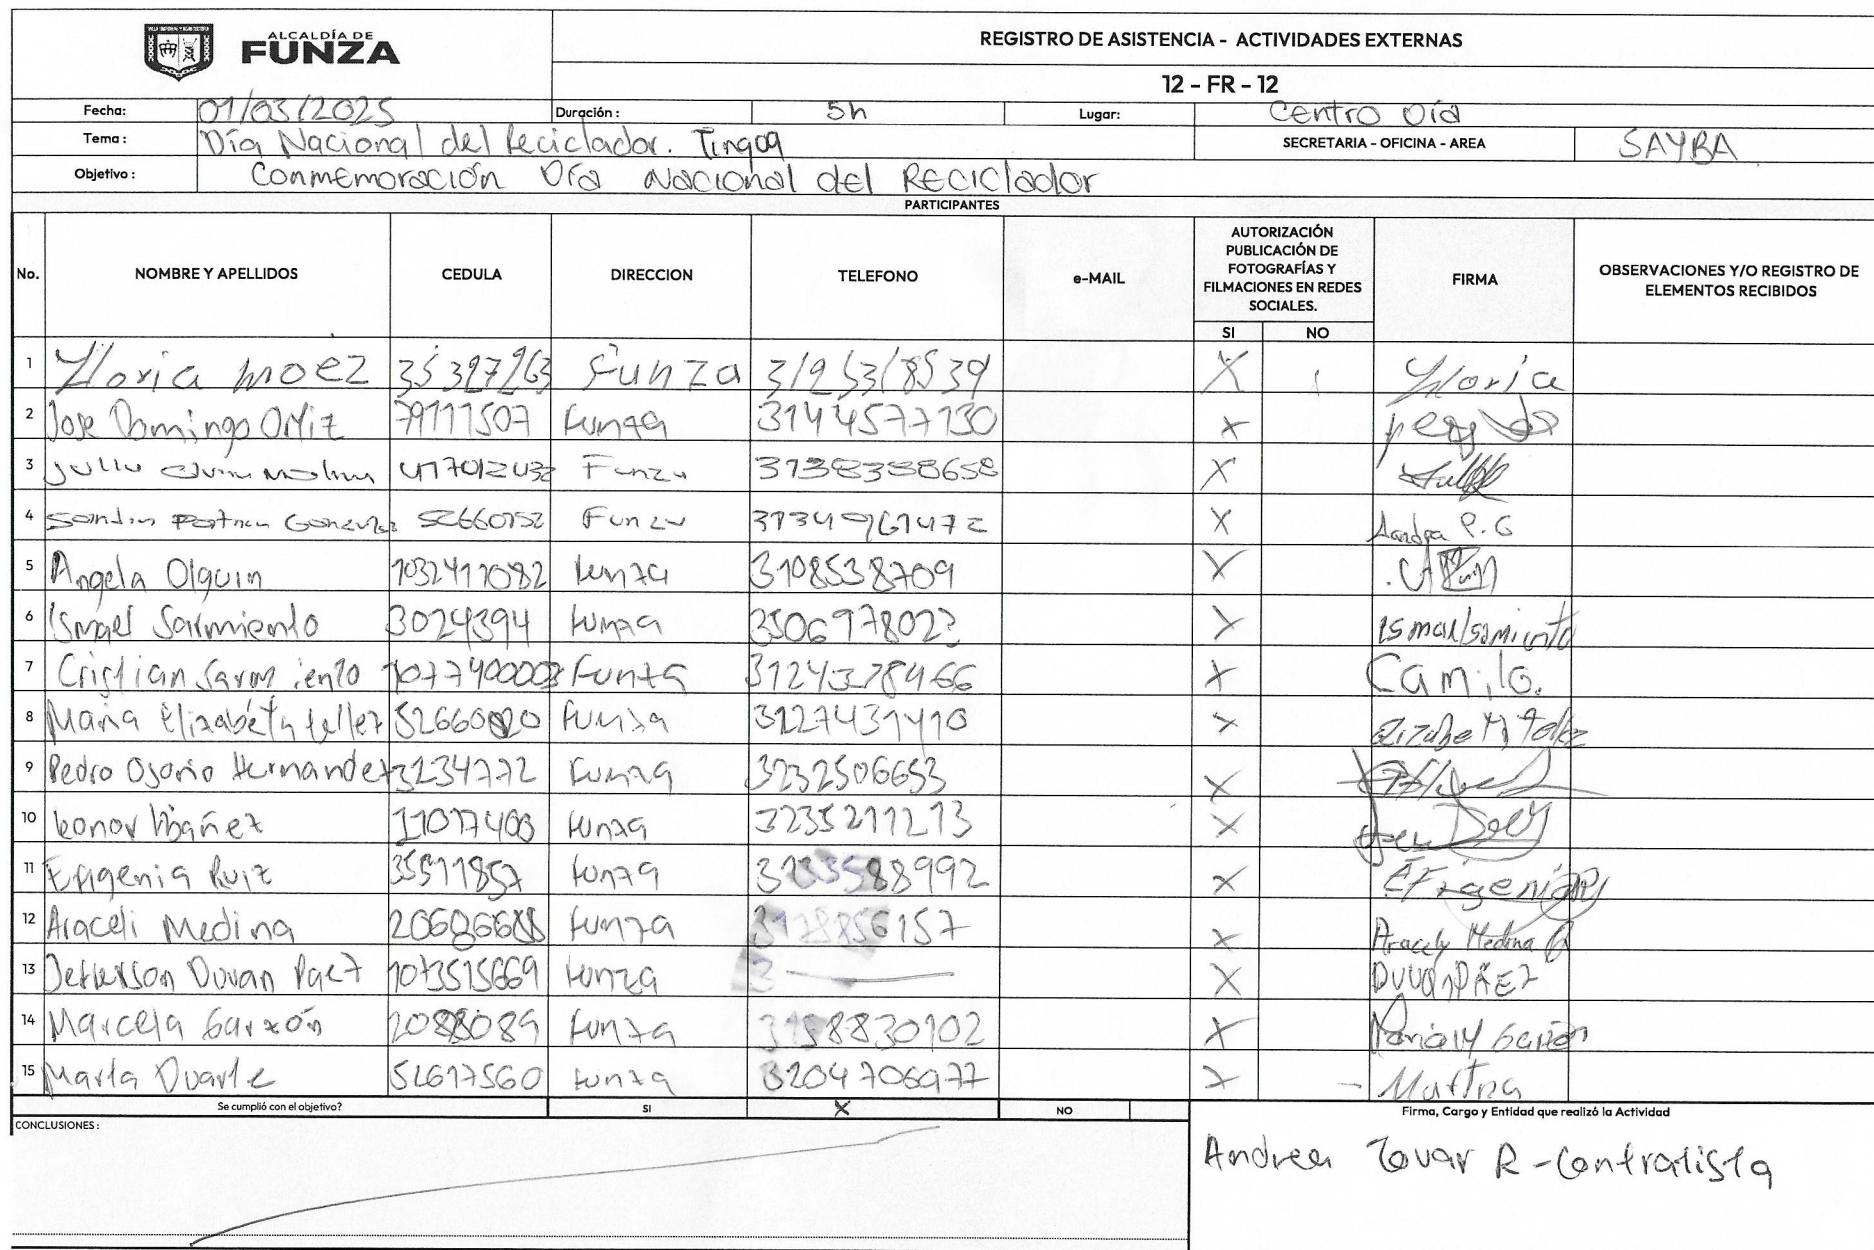 ALCALDÍA DE
FUNZA
REGISTRO DE ASISTENCIA - ACTIVIDADES EXTERNAS
12 - FR - 12
Fecha: 01/03/2025 Duración: 5h Lugar: Centro Día
Tema: Día Nacional del Reciclador. Tingua SECRETARIA - OFICINA - AREA SAYBA
Objetivo: Conmemoración Día Nacional del Reciclador
PARTICIPANTES
No. NOMBRE Y APELLIDOS CEDULA DIRECCION TELEFONO e-MAIL AUTORIZACIÓN PUBLICACIÓN DE FOTOGRAFÍAS Y FILMACIONES EN REDES SOCIALES. SI NO FIRMA OBSERVACIONES Y/O REGISTRO DE ELEMENTOS RECIBIDOS
1 Gloria 35327263 Funza 3125318539 X Gloria
2 Jose Domingo Ortiz 79111507 Funza 3144577130 X
3 Funza 3138338658 X
4 52660752 Funza 3134961472 X Sandra P. G
5 Angela Olguin 1032411082 Funza 3108538709 X
6 Ismael Sarmiento 3024394 Funza 3506978023 X
7 Cristian Sarmiento 1077400003 Funza X Camilo.
8 Maria Elizabeth Tellez Funza 3127431410 X Elizabeth Tellez
9 Pedro Osorio Hernandez 3234772 Funza 3232506653 X
10 Leonor Ibañez 11017400 Funza 3235211213 X
11 Efigenia Ruiz 35511857 Funza X Efigenia R
12 Araceli Medina Funza 3128856157 X Aracely Medina
13 Jefferson Duvan Paez 1073515669 Funza X DUVAN PÁEZ
14 Marcela Garzón 2088089 Funza 3158830102 X
15 Marta Duarte 52617560 Funza 3204706977 X Martha
Se cumplió con el objetivo? SI X NO
Firma, Cargo y Entidad que realizó la Actividad
CONCLUSIONES:
Andrea Tovar R - Contratista